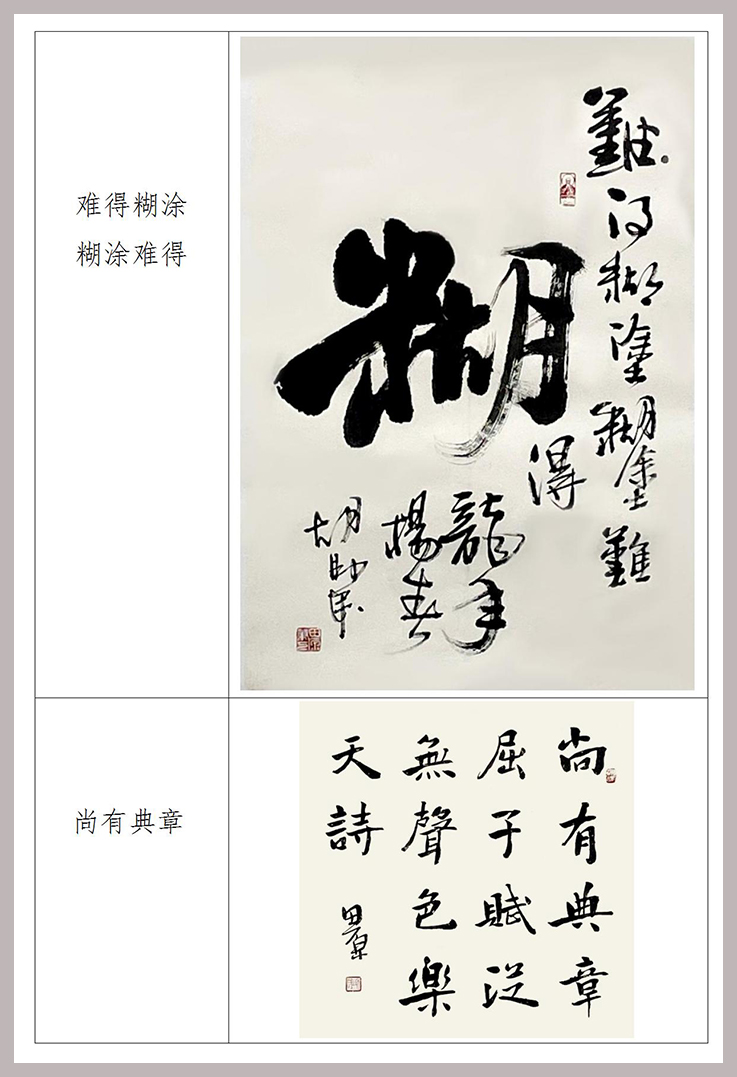 难得糊涂
糊涂难得
難得糊塗糊塗難
得
糊
龍年
楊春
尚有典章
尚有典章
屈子賦從
無聲色樂
天詩